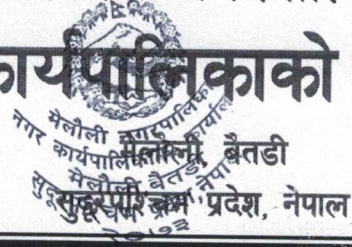 कार्यपालिकाको
मेलौली, बैतडी
सुदूरपश्चिम प्रदेश, नेपाल
मेलौली नगरपालिका
नगर कार्यपालिकाको कार्यालय
मेलौली बैतडी
२०७३